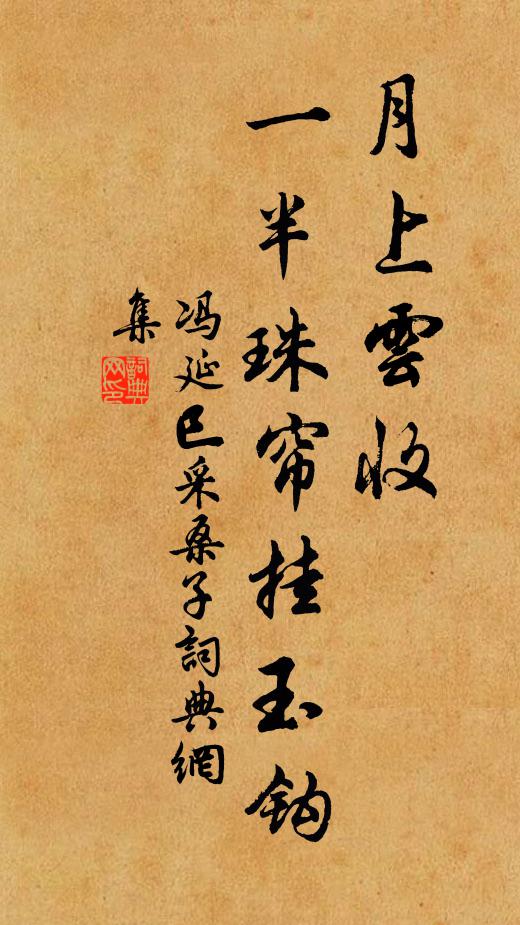 月上雲收
一半珠帘挂玉鈎
冯延巳采桑子詞典網
集
詞典网印